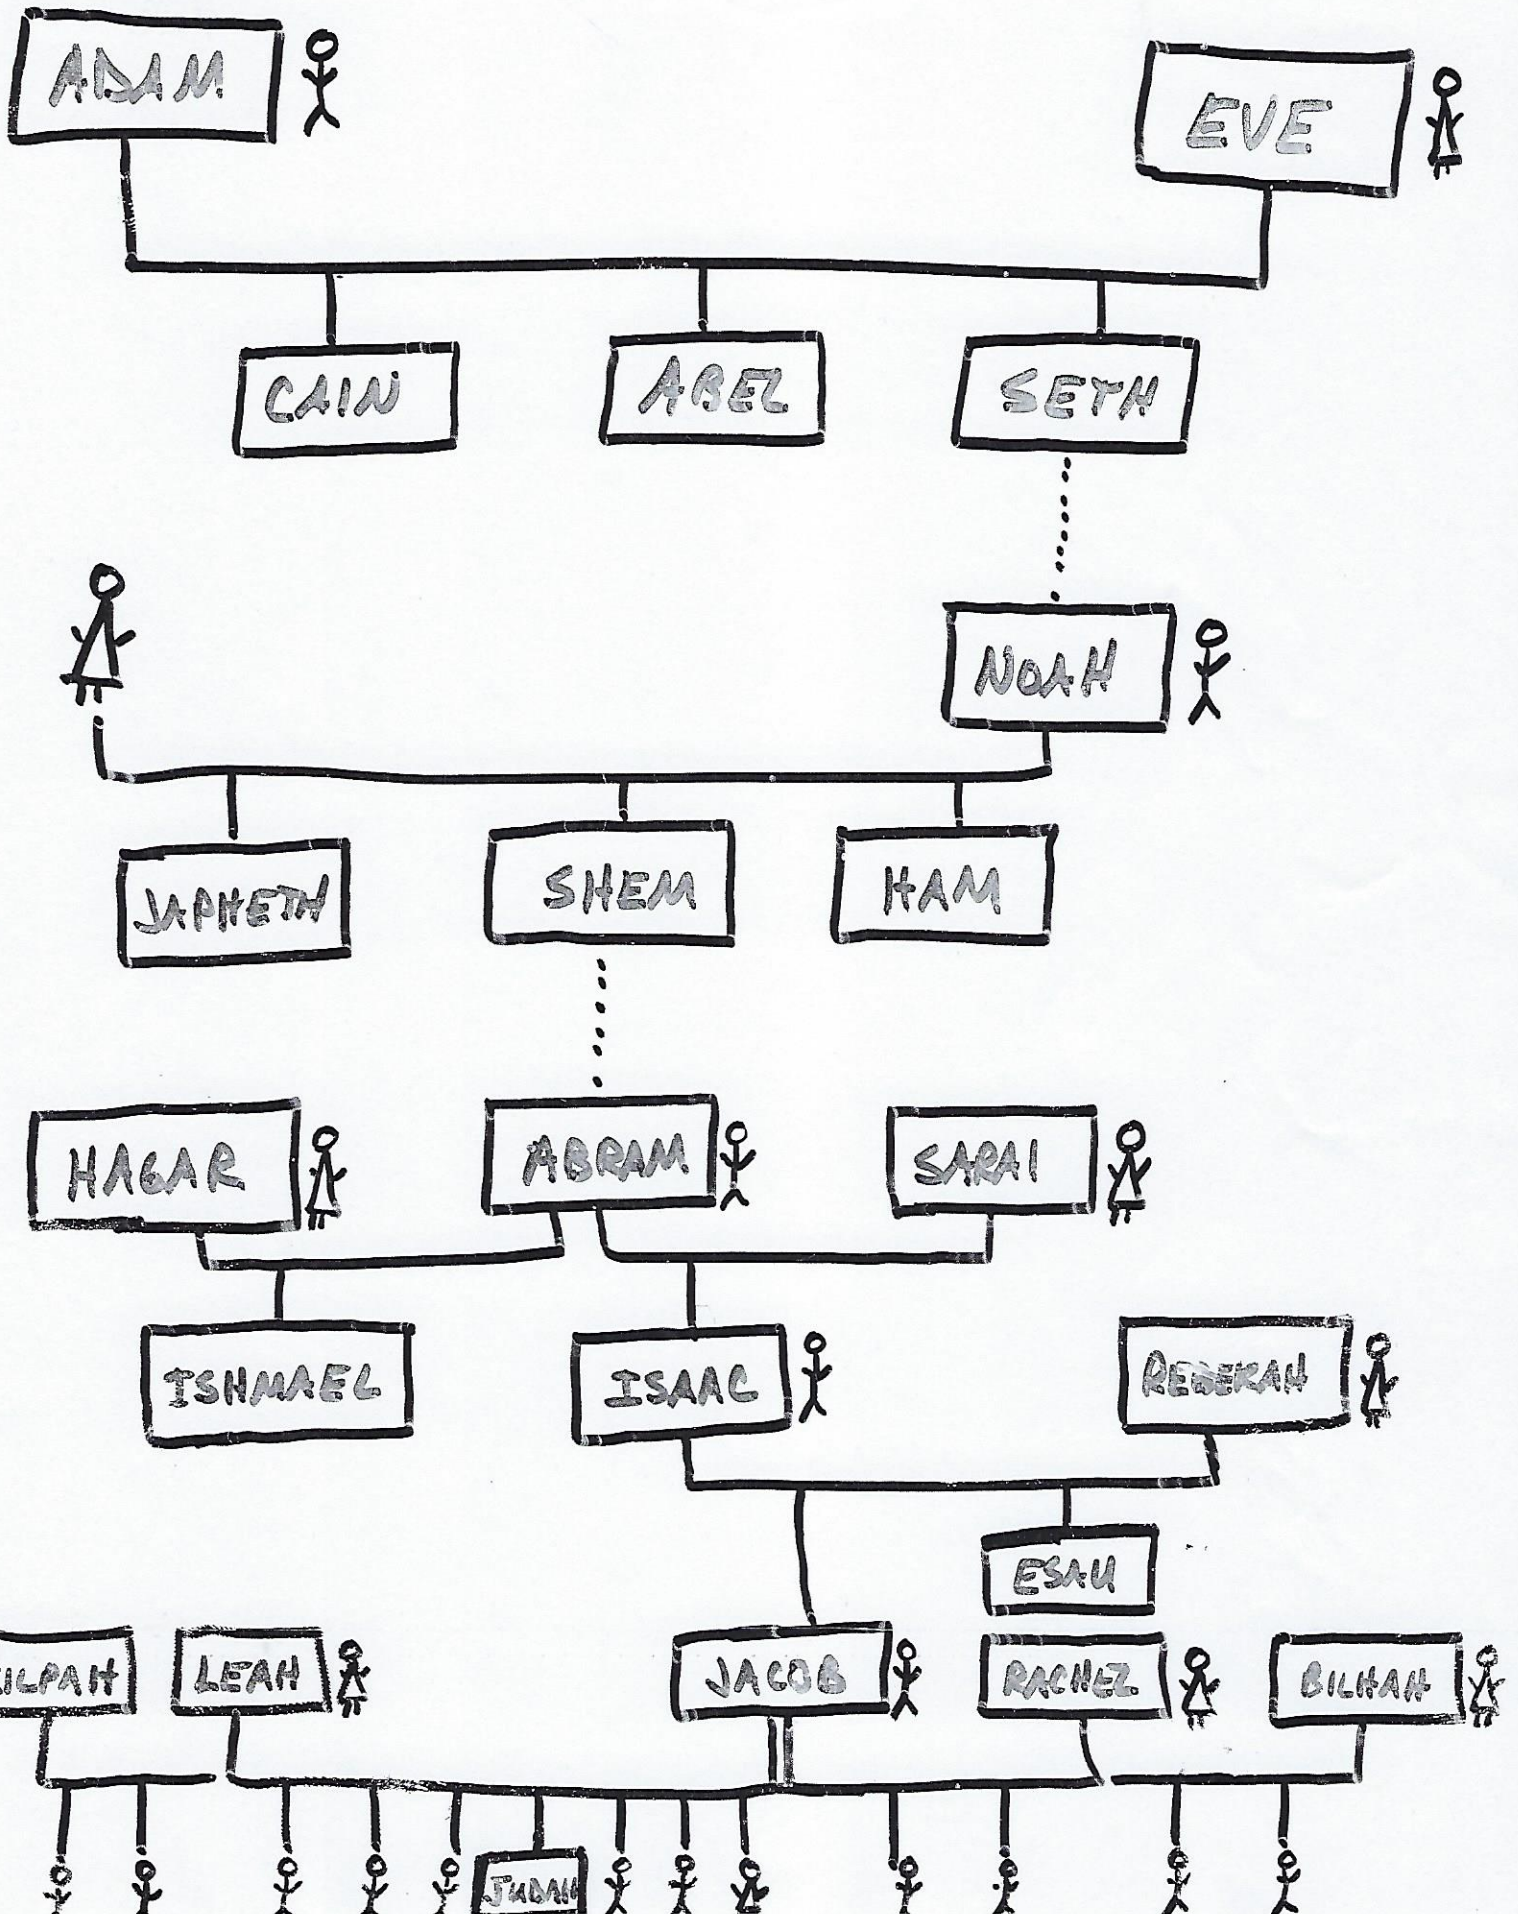 ADAM
EVE
CAIN
ABEL
SETH
NOAH
JAPHETH
SHEM
HAM
HAGAR
ABRAM
SARAI
ISHMAEL
ISAAC
REBEKAH
ESAU
ILPAH
LEAH
JACOB
RACHEL
BILHAH
JUDAH